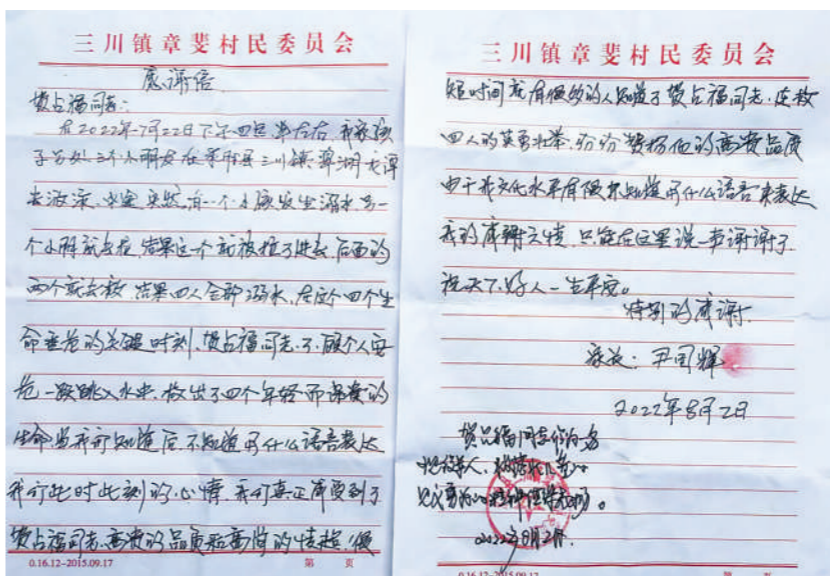 三川镇章斐村民委员会
感谢信
贺占福同志:
在2022年7月22日下午四点半左右,我家孩
子另处三个小朋友在永胜县三川镇翠湖龙潭
去游泳,中途突然有一个小孩发生溺水,另一
个小孩就去拉,结果这一个就被拉了进去,后面的
两个就去救,结果四人全部溺水,在这个四个生
命垂危的关键时刻,贺占福同志,不顾个人安
危一跃跳入水中,救出了四个年轻而宝贵的
生命,当我们知道后不知道用什么语言表达
我们此时此刻的心情,我们真正感受到了
贺占福同志,高贵的品质和高尚的情操,很
0.16.12-2015.09.17 第 页
三川镇章斐村民委员会
短时间就有很多的人知道了贺占福同志,连救
四人的英勇壮举,纷纷赞扬他的高贵品质
由于我文化水平有限不知道用什么语言来表达
我的感谢之情,只能在这里说一声谢谢了
祝天下好人一生平安。
特别的感谢.
家长:尹国辉
2022年8月2日
贺占福同志作为一名
退役军人,
见义勇为的精神值得表扬。
2022年8月2日.
0.16.12-2015.09.17 第 页